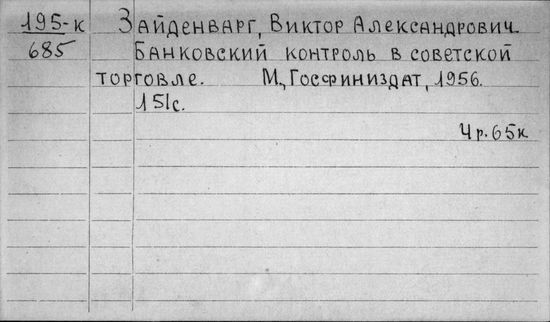 195-к
685
Зайденварг, Виктор Александрович.
Банковский контроль в советской
торговле. М., Госфиниздат, 1956.
151с.
4р. 65к